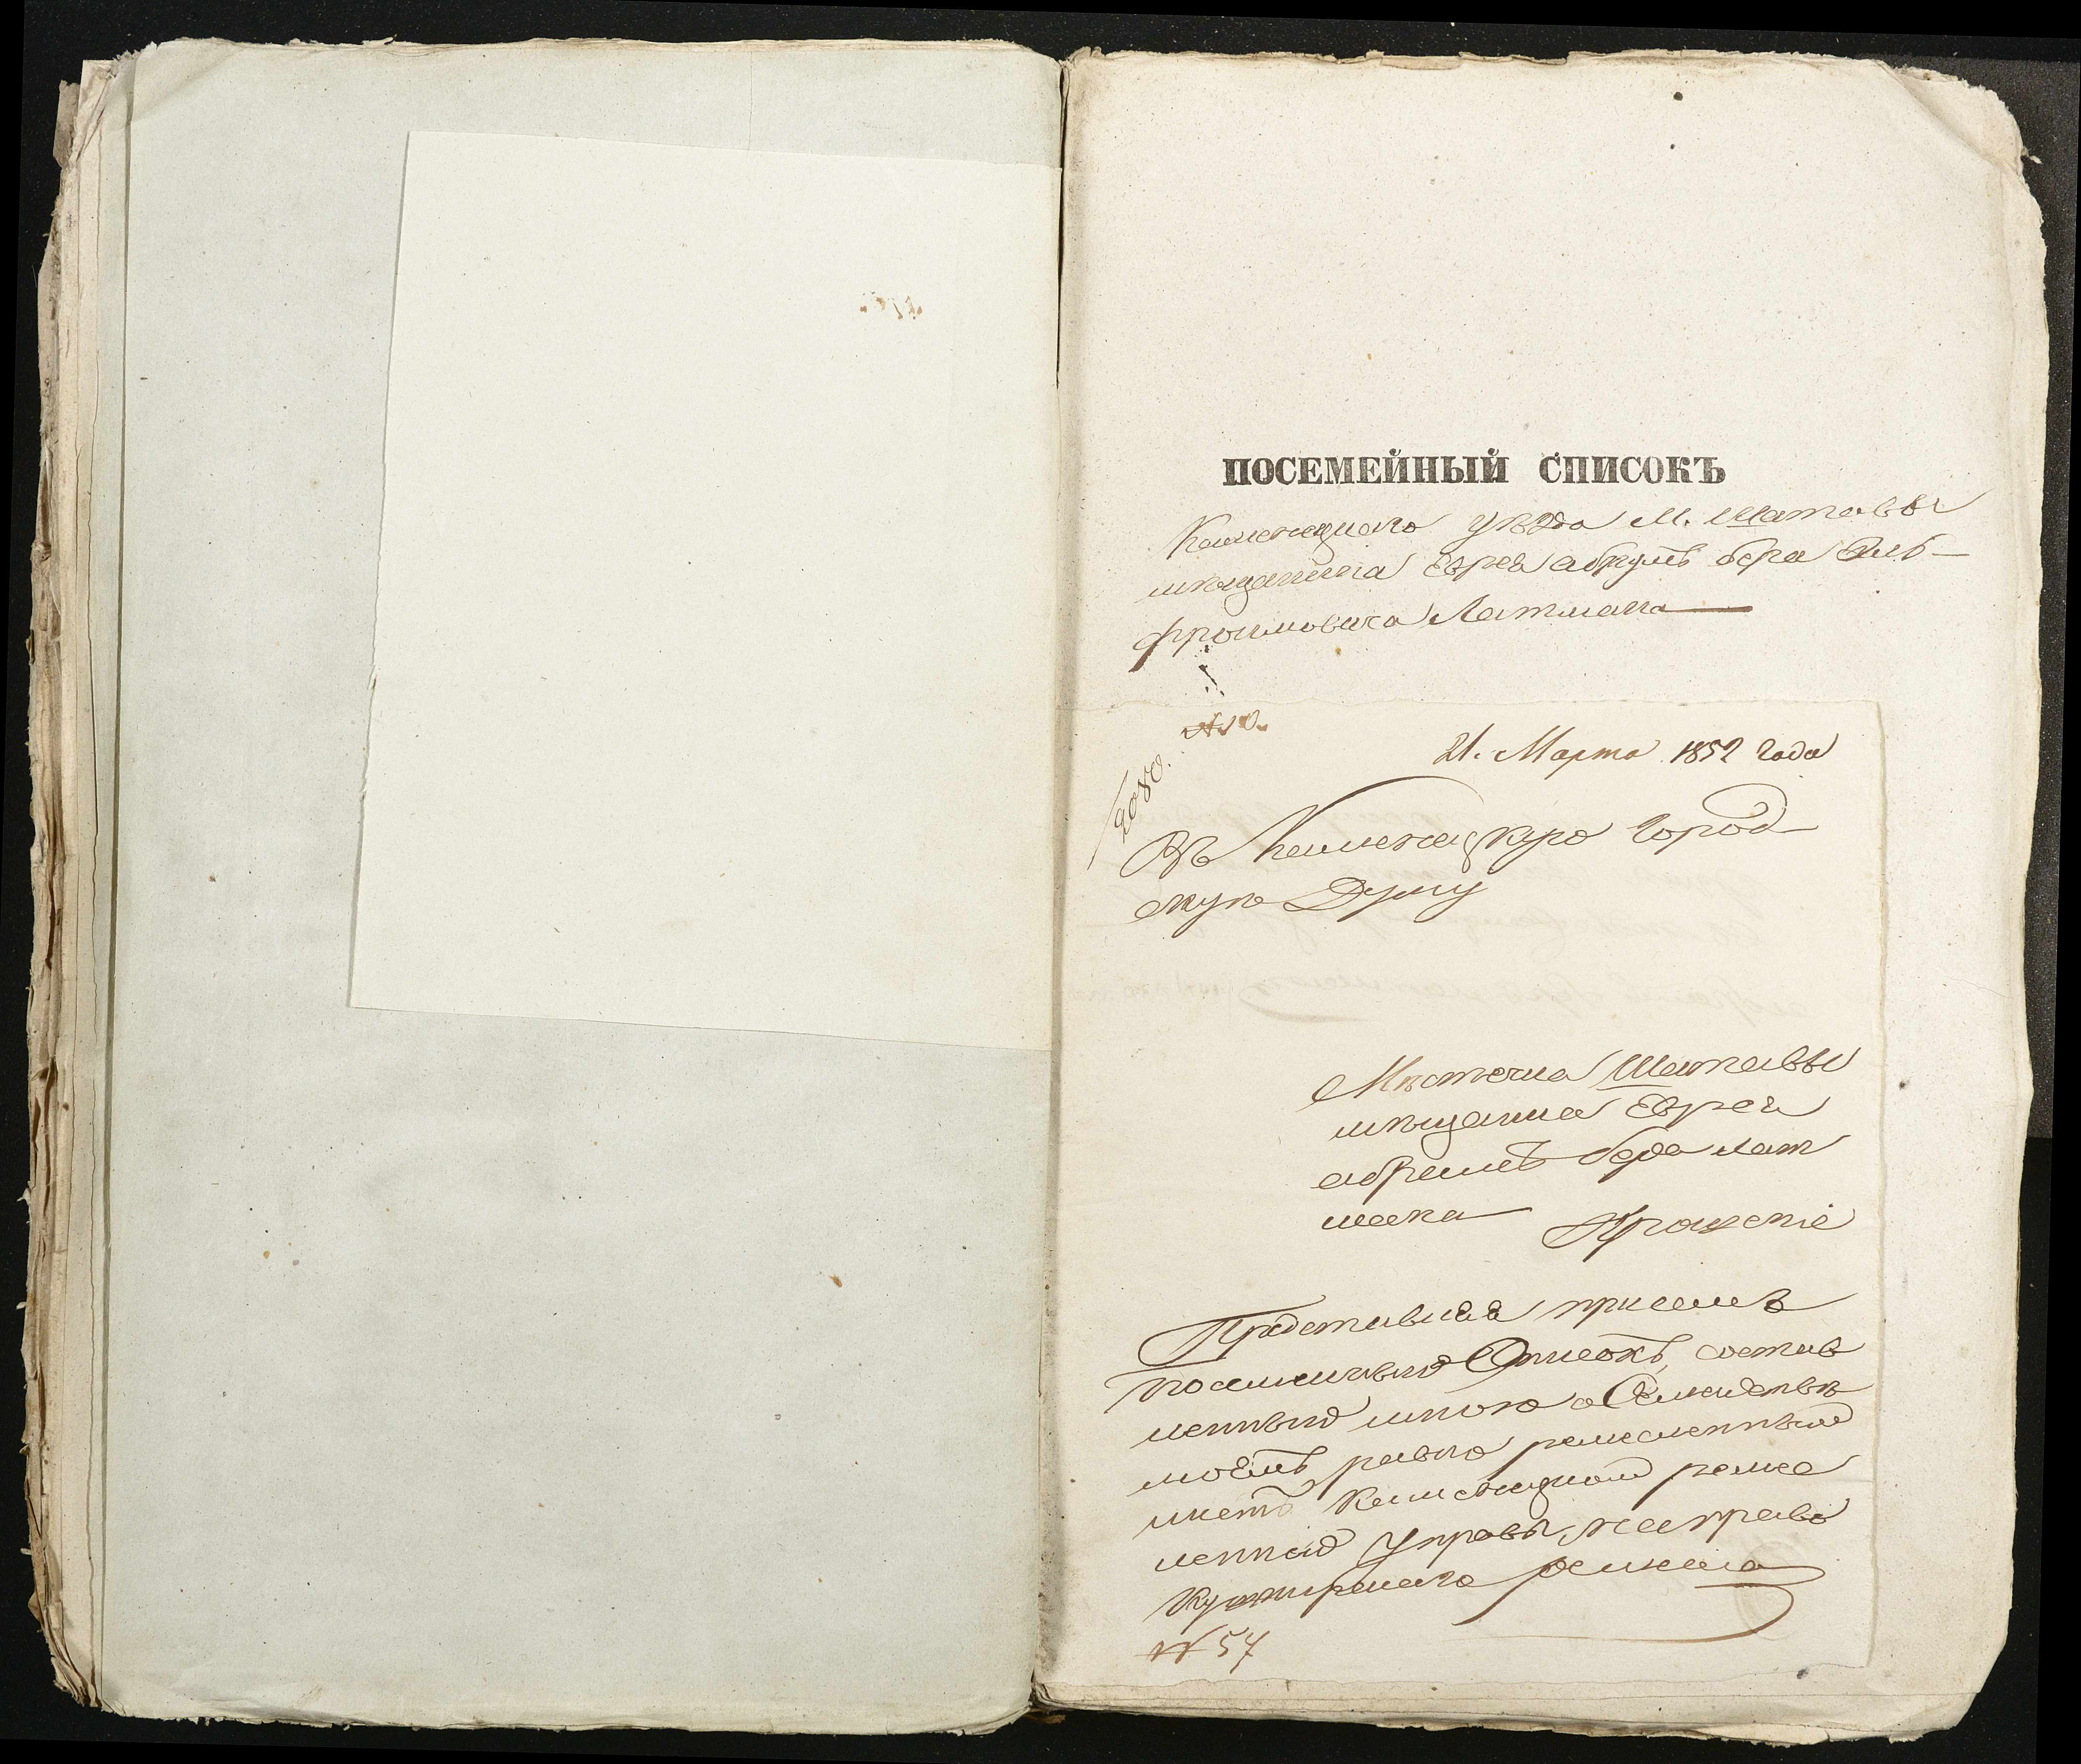 ПОСЕМЕЙНЫЙ СПИСОКЪ
Каменецкаго уѣзда М. Шатавы
мѣщанина Еврея абрумъ бера Эль-
фроимовича Латмана
№ 10.
2080.
21. Марта 1852 года
Въ Каменецкую Город
скую Думу
Мѣстечка Шатавы
мѣщанина Еврея
абрамъ бера лат
мана Прошеніе
Представляя присемъ
посемейный Списокъ, состав
ленный мною о Семействѣ
моемъ, равно ремесленный
листъ Каменецкой ремес
ленной Управы, на право
ремесла
№ 57